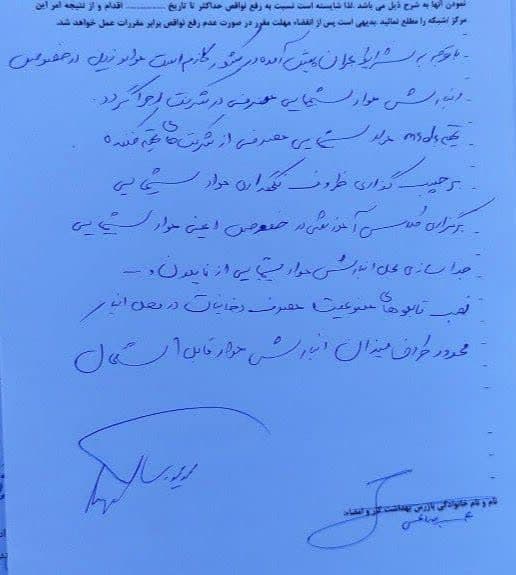 نمودن آنها به شرح ذیل می باشد لذا شایسته است نسبت به رفع نواقص حداکثر تا تاریخ .............. اقدام و از نتیجه امر این
مرکز/شبکه را مطلع نمائید بدیهی است پس از انقضاء مهلت مقرر در صورت عدم رفع نواقص برابر مقررات عمل خواهد شد.
- با توجه به شرایط بحران پیش آمده در کشور لازم است موارد ذیل در خصوص
- انبارش مواد شیمیایی مصرفی در شرکت اجرا گردد.
- تهیه msds مواد شیمیایی مصرفی از شرکت های تهیه کننده
- برچسب گذاری ظروف نگهداری مواد شیمیایی
- برگزاری کلاس آموزشی در خصوص ایمنی مواد شیمیایی
- جداسازی محل انبارش مواد شیمیایی از
- نصب تابلوهای ممنوعیت مصرف دخانیات در محل انبار
- محدود کردن میزان انبارش مواد قابل اشتعال
نام و نام خانوادگی بازرس بهداشت کار و امضاء: